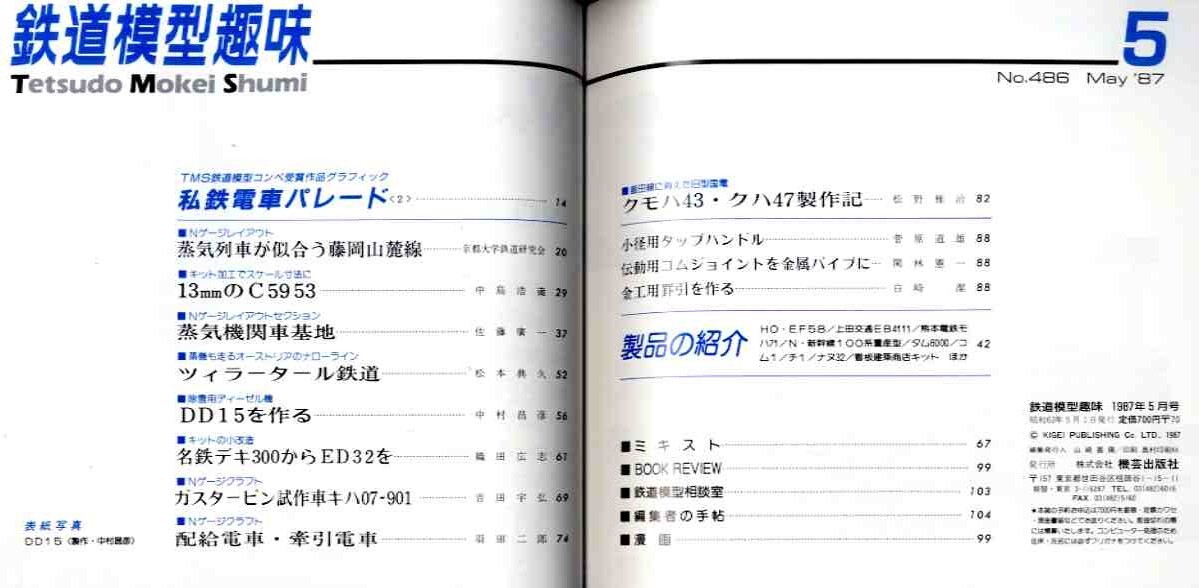 鉄道模型趣味
Tetsudo Mokei Shumi
5
No.486 May '87
TMS鉄道模型コンペ受賞作品グラフィック
私鉄電車パレード〈2〉 14
■Nゲージレイアウト
蒸気列車が似合う藤岡山麓線 京都大学鉄道研究会 20
■キット加工でスケール寸法に
13mmのC5953 中島浩 29
■Nゲージレイアウトセクション
蒸気機関車基地 佐藤 一 37
■蒸機も走るオーストリアのナローライン
ツィラータール鉄道 松本典久 52
■除雪用ディーゼル機
DD15を作る 中村昌彦 56
■キットの小改造
名鉄デキ300からED32を 織田広志 67
■Nゲージクラフト
ガスタービン試作車キハ07-901 吉田宇弘 69
■Nゲージクラフト
配給電車・牽引電車 羽田二郎 74
表紙写真
DD15〈製作・中村昌彦〉
■飯田線に消えた旧型国電
クモハ43・クハ47製作記 松野雅治 82
小径用タップハンドル 菅原道雄 88
伝動用ゴムジョイントを金属パイプに 関林憲一 88
金工用罫引を作る 白崎 潔 88
製品の紹介
HO・EF58/上田交通EB4111/熊本電鉄モ
ハ71/N・新幹線100系量産型/タム6000/コ
ム1/チ1/ナヌ32/看板建築商店キット ほか
42
■ミキスト 67
■BOOK REVIEW 99
■鉄道模型相談室 103
■編集者の手帖 104
■漫画 99
鉄道模型趣味 1987年5月号
昭和62年5月1日発行 定価700円〒70
© KIGEI PUBLISHING Co. LTD. 1987
編集発行人 山崎喜陽/印刷 奥村印刷㈱
発行所 株式会社 機芸出版社
〒157 東京都世田谷区祖師谷1-15-11
振替・東京 3-1/6287 TEL. 03(482)6016
FAX. 03(482)5160